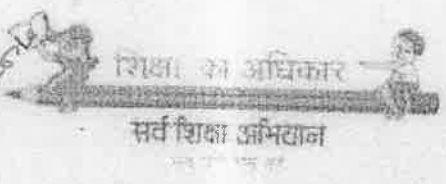 शिक्षा का अधिकार
सर्व शिक्षा अभियान